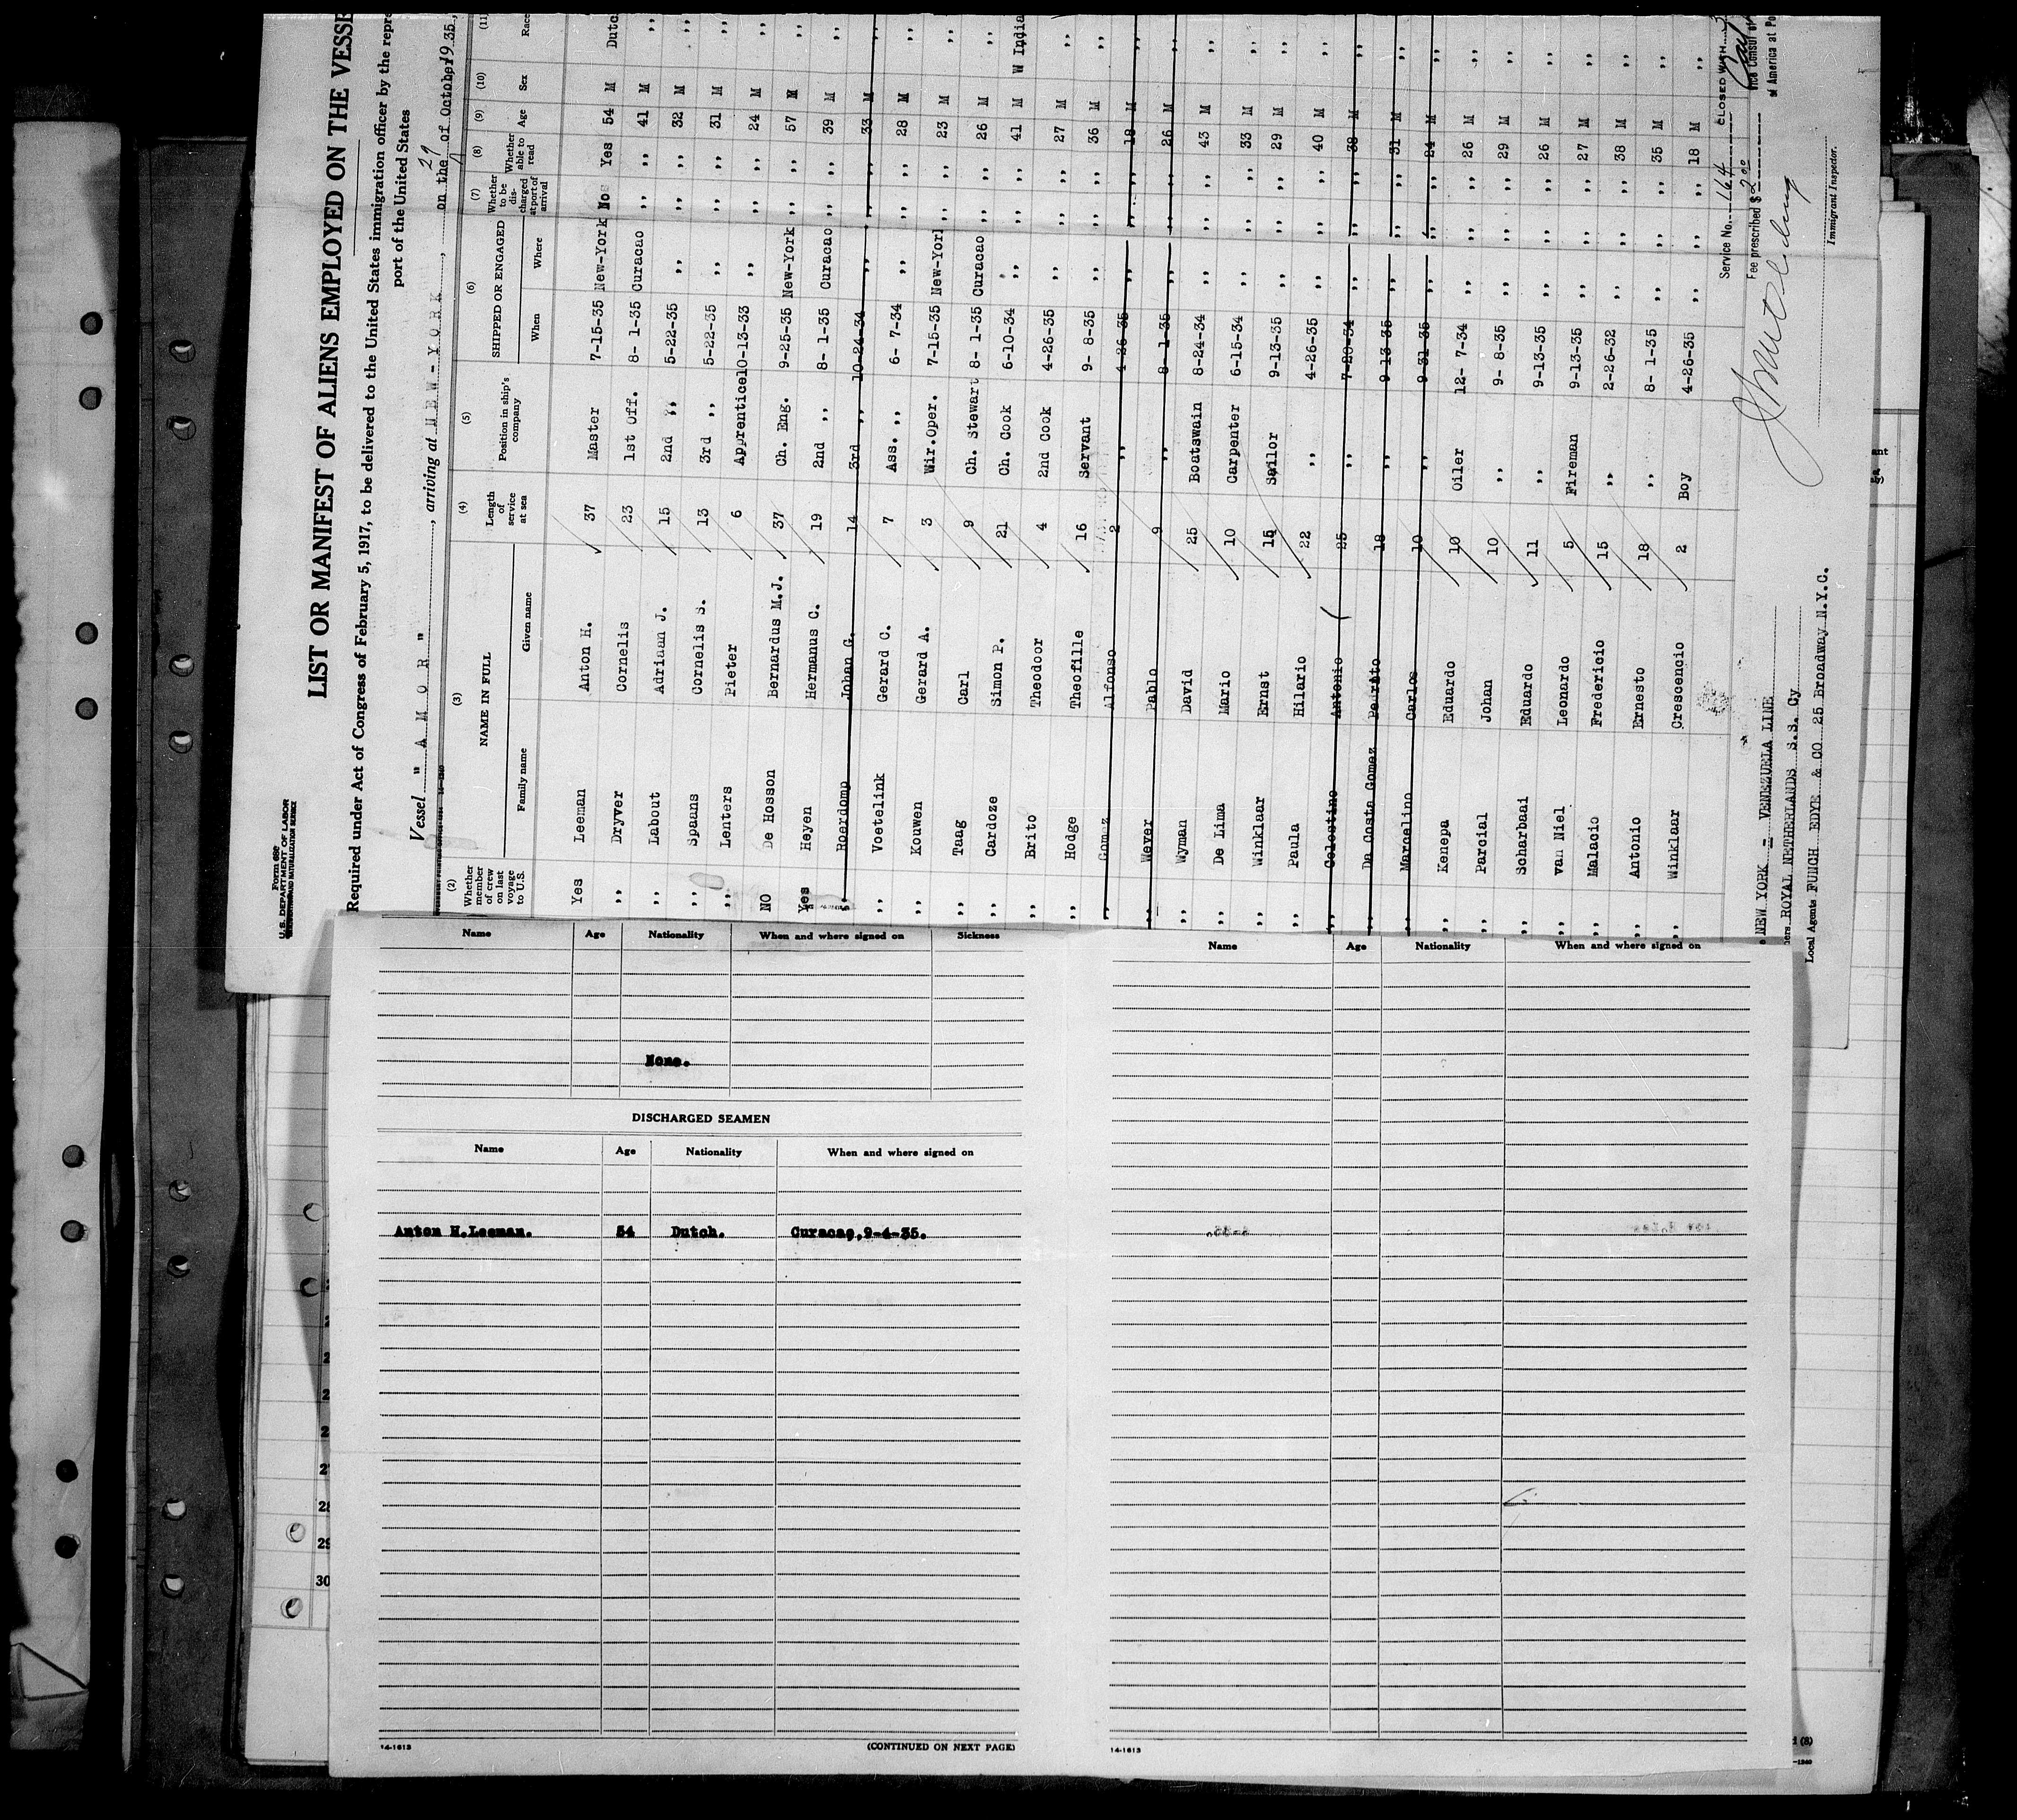 Form 680
U.S. DEPARTMENT OF LABOR
LIST OR MANIFEST OF ALIENS EMPLOYED ON THE VESSE
Required under Act of Congress of February 5, 1917, to be delivered to the United States immigration officer by the repre
port of the United States
Vessel " A M O R " , arriving at N E W - Y O R K , on the 29 of October 1935,
(2) (3) (4) (5) (6) (7) (8) (9) (10) (11)
Whether member of crew on last voyage to U.S. NAME IN FULL Family name Given name Length of service at sea Position in ship's company SHIPPED OR ENGAGED When Where Whether to be discharged at port of arrival Whether able to read Age Sex Race
Yes Leeman Anton H. 37 Master 7-15-35 New-York No Yes 54 M Dutc
,, Dryver Cornelis 23 1st Off. 8- 1-35 Curacao ,, ,, 41 M ,,
,, Labout Adriaan J. 15 2nd ,, 5-22-35 ,, ,, ,, 32 M ,,
,, Spaans Cornelis S. 13 3rd ,, 5-22-35 ,, ,, ,, 31 M ,,
,, Lenters Pieter 6 Apprentice 10-13-33 ,, ,, ,, 24 M ,,
NO De Hosson Bernardus M.J. 37 Ch. Eng. 9-25-35 New-York ,, ,, 57 M ,,
Yes Heyen Hermanus C. 19 2nd ,, 8- 1-35 Curacao ,, ,, 39 M ,,
,, Roerdomp Johan G. 14 3rd ,, 10-24-34 ,, ,, ,, 33 M ,,
,, Voetelink Gerard C. 7 Ass. ,, 6- 7-34 ,, ,, ,, 28 M ,,
,, Kouwen Gerard A. 3 Wir.Oper. 7-15-35 New-Yorl ,, ,, 23 M ,,
,, Taag Carl 9 Ch. Stewart 8- 1-35 Curacao ,, ,, 26 M ,,
,, Cardoze Simon P. 21 Ch. Cook 6-10-34 ,, ,, ,, 41 M W India
,, Brito Theodoor 4 2nd Cook 4-26-35 ,, ,, ,, 27 M ,,
,, Hodge Theofille 16 Servant 9- 8-35 ,, ,, ,, 36 M ,,
,, Gomez Alfonso 2 ,, 4-26-35 ,, ,, ,, 18 M ,,
,, Wever Pablo 9 ,, 8- 1-35 ,, ,, ,, 26 M ,,
,, Wyman David 25 Boatswain 8-24-34 ,, ,, ,, 43 M ,,
,, De Lima Mario 10 Carpenter 6-15-34 ,, ,, ,, 33 M ,,
,, Winklaar Ernst 15 Sailor 9-13-35 ,, ,, ,, 29 M ,,
,, Paula Hilario 22 ,, 4-26-35 ,, ,, ,, 40 M ,,
,, Celestino Antonio 25 ,, 7-20-34 ,, ,, ,, 38 M ,,
,, Da Costa Gomez 18 ,, 9-13-35 ,, ,, ,, 31 M ,,
,, Marcelino Carlos 10 ,, 9-31-35 ,, ,, ,, 24 M ,,
,, Kenepa Eduardo 10 Oiler 12- 7-34 ,, ,, ,, 26 M ,,
,, Parcial Johan 10 ,, 9- 8-35 ,, ,, ,, 29 M ,,
,, Scharbaai Eduardo 11 ,, 9-13-35 ,, ,, ,, 26 M ,,
,, van Niel Leonardo 5 Fireman 9-13-35 ,, ,, ,, 27 M ,,
,, Malacio Fredericio 15 ,, 2-26-32 ,, ,, ,, 38 M ,,
,, Antonio Ernesto 18 ,, 8- 1-35 ,, ,, ,, 35 M ,,
,, Winklaar Crescencio 2 Boy 4-26-35 ,, ,, ,, 18 M ,,
NEW YORK - VENEZUELA LINE
ners ROYAL NETHERLANDS S.S. Cy
Local Agents FUNCH EDYE & CO 25 Broadway N.Y.C.
Service No. 164
Fee prescribed $2.00
CLOSED WITH
Vice Consul of
of America at Po
Immigrant Inspector.
Name Age Nationality When and where signed on Sickness
None.
DISCHARGED SEAMEN
Name Age Nationality When and where signed on
Anton H.Leeman. 54 Dutch. Curacao,9-4-35.
14-1613 (CONTINUED ON NEXT PAGE)
Name Age Nationality When and where signed on
14-1613
28
29
30